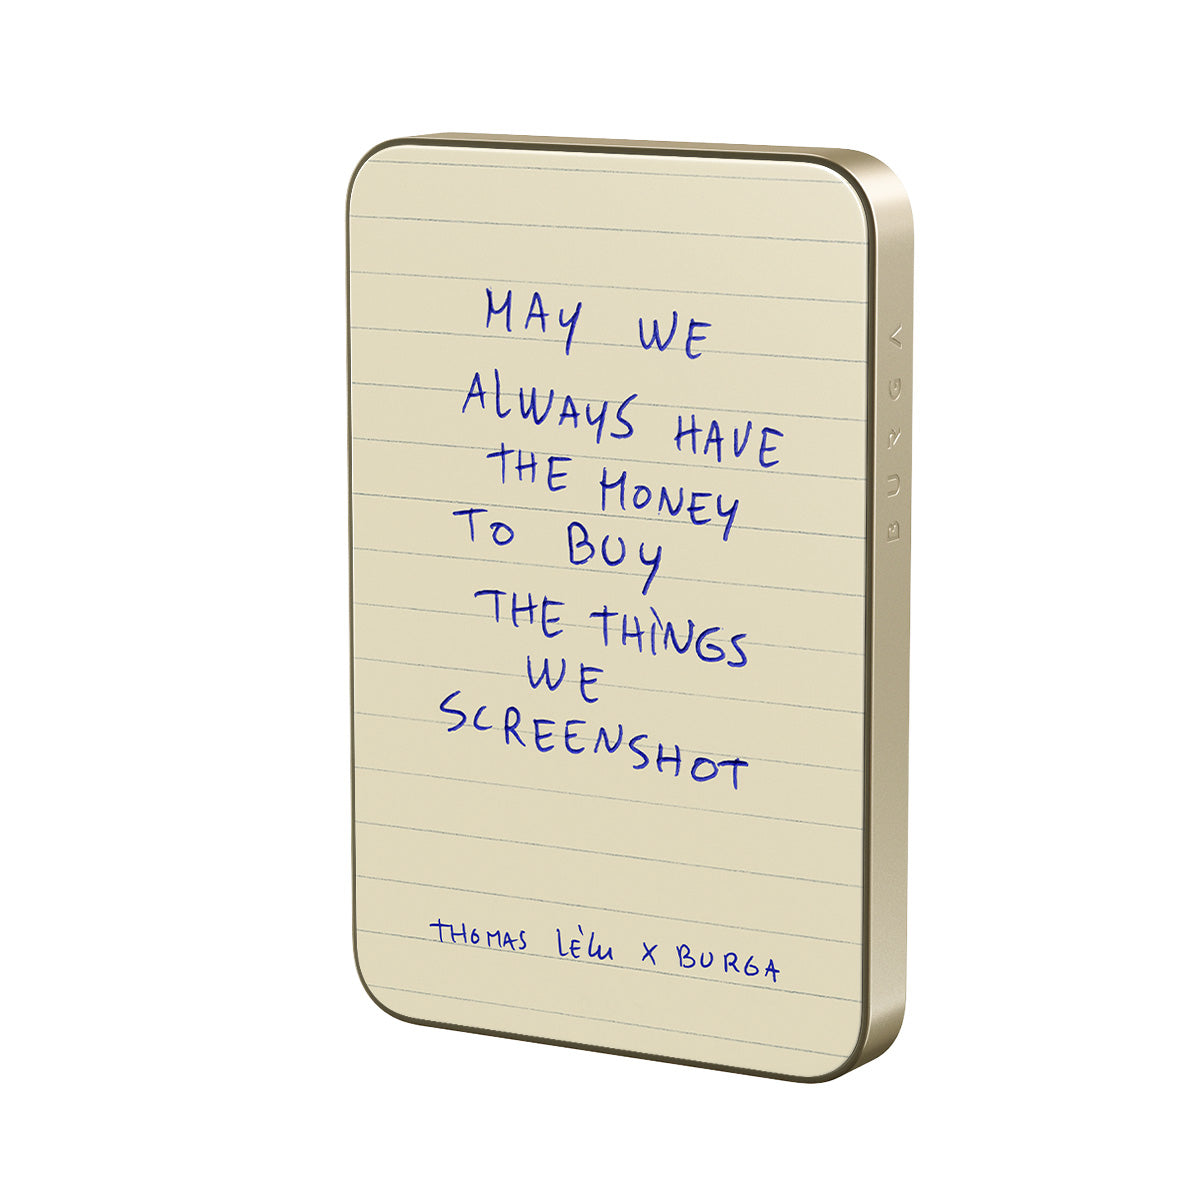 MAY WE
ALWAYS HAVE
THE MONEY
TO BUY
THE THINGS
WE
SCREENSHOT
THOMAS LÈLU X BURGA
BURGA